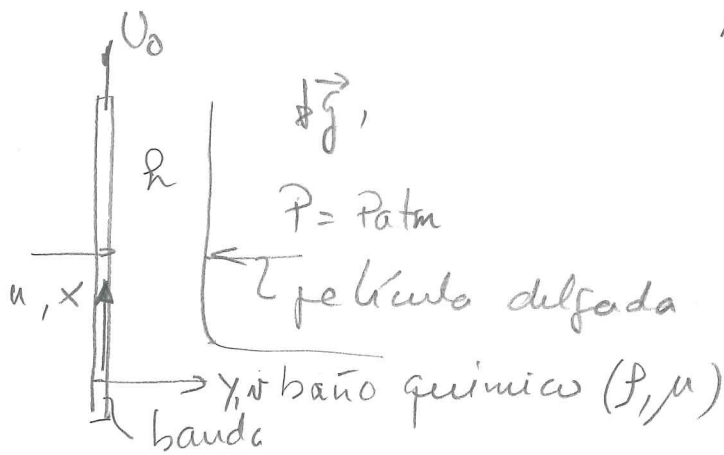 U₀
↓g⃗,
h
P = Patm
película delgada
u, x
y, v baño químico (ρ, μ)
banda